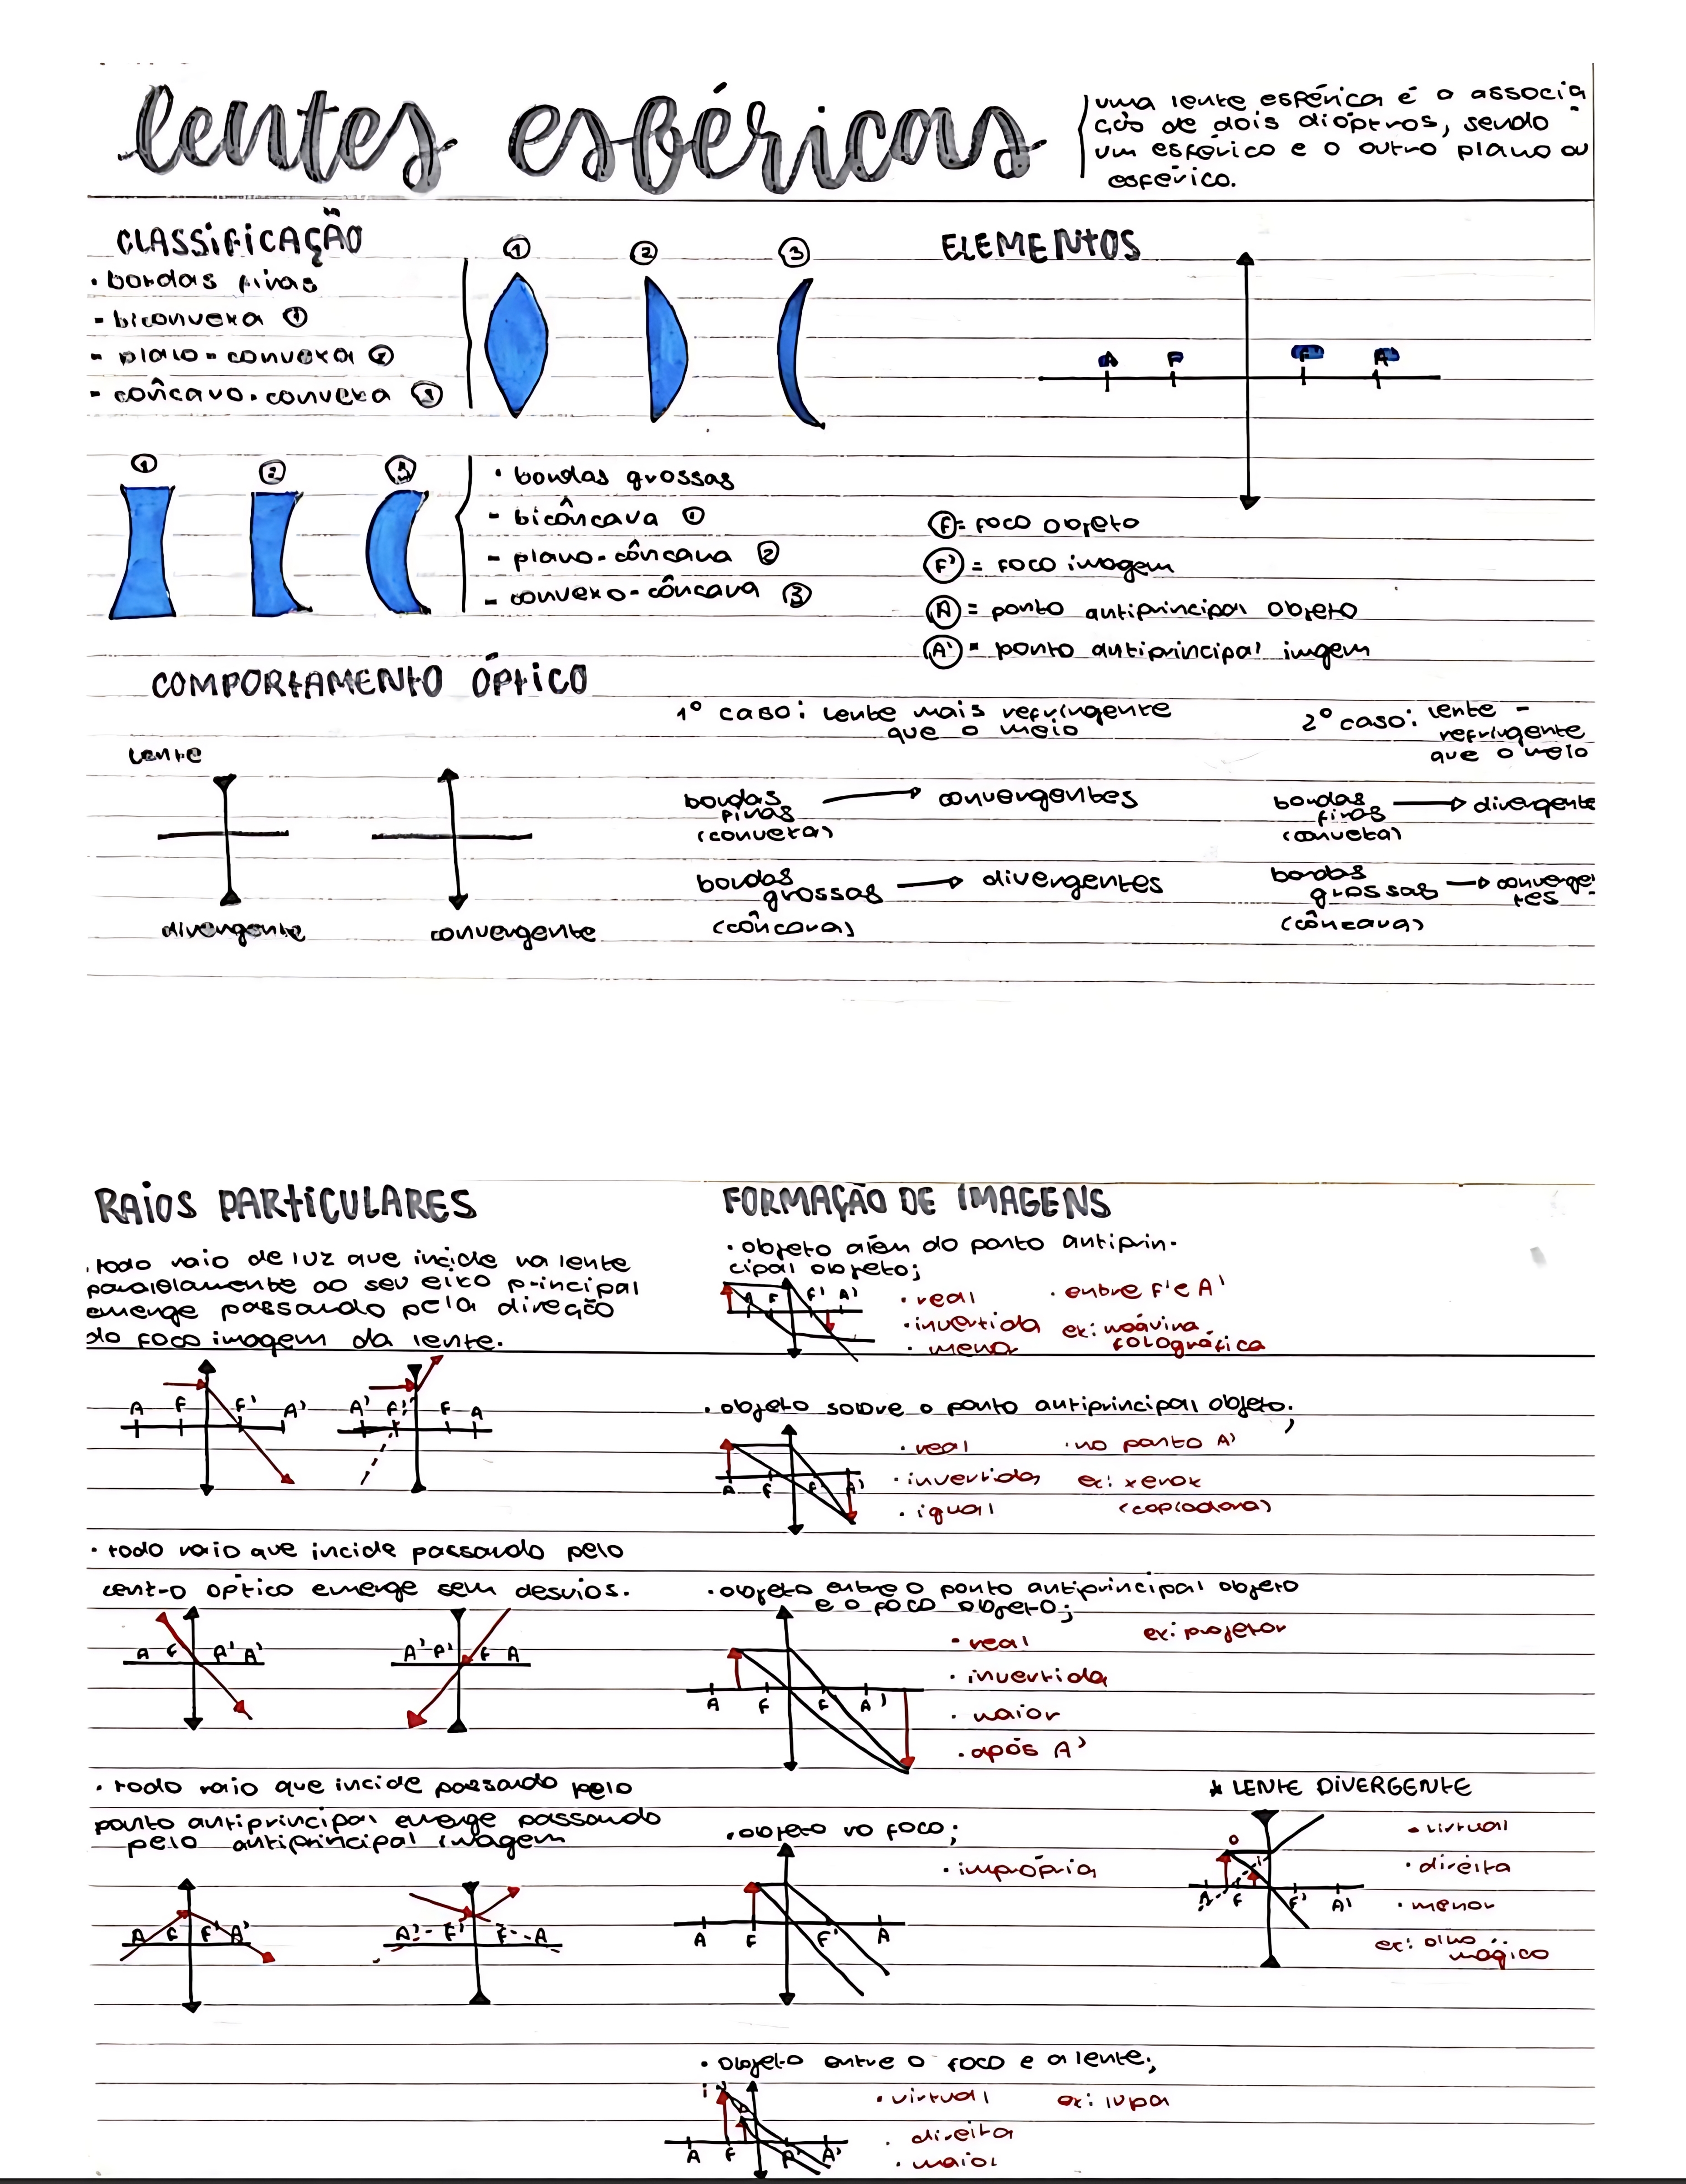 lentes esféricas
uma lente esférica é a associa
ção de dois dioptros, sendo
um esférico e o outro plano ou
esférico.
CLASSIFICAÇÃO
• bordas finas
- biconvexa ①
- plano-convexa ②
- côncavo-convexa ③
① ② ③
① ② ③
• bordas grossas
- bicôncava ①
- plano-côncava ②
- convexo-côncava ③
ELEMENTOS
A F F' A'
F = foco objeto
F' = foco imagem
A = ponto antiprincipal objeto
A' = ponto antiprincipal imgem
COMPORTAMENTO ÓPTICO
lente
divergente convergente
1º caso: lente mais refringente
que o meio
bordas
finas
(convexa)
convergentes
bordas
grossas
(côncava)
divergentes
2º caso: lente -
refringente
que o meio
bordas
finas
(convexa)
divergente
bordas
grossas
(côncava)
converge
tes
RAIOS PARTICULARES
. todo raio de luz que incide na lente
paralelamente ao seu eixo principal
emerge passando pela direção
do foco imagem da lente.
A F F' A'
A' F' F A
• todo raio que incide passando pelo
centro óptico emerge sem desvios.
A F F' A'
A' F' F A
• todo raio que incide passando pelo
ponto antiprincipal emerge passando
pelo antiprincipal imagem
A F F' A'
A' - F' F - A
FORMAÇÃO DE IMAGENS
• objeto além do ponto antiprin-
cipal objeto;
A F F' A'
• real • entre F' e A'
• invertida ex: máquina
fotográfica
• menor
• objeto sobre o ponto antiprincipal objeto;
A F F' A'
• real • no ponto A'
• invertida ex: xerox
• igual (copiadora)
• objeto entre o ponto antiprincipal objeto
e o foco objeto;
A F F' A'
• real ex: projetor
• invertida
• maior
• após A'
• objeto no foco;
A F F' A
• imprópria
* LENTE DIVERGENTE
o i
A F F' A'
• virtual
• direita
• menor
ex: olho
mágico
• objeto entre o foco e a lente;
i
A F F' A'
• virtual ex: lupa
• direita
• maior